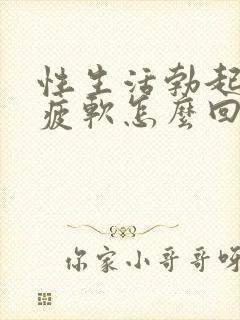 性生活勃起
疲軟怎麼回
你家小哥哥呀